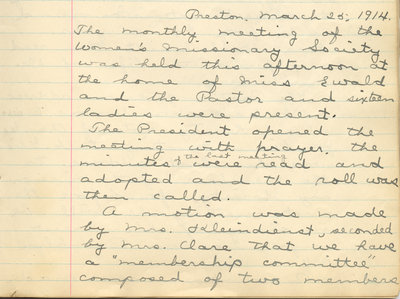 Preston, March 25, 1914.
The monthly meeting of the
Women's Missionary Society
was held this afternoon at
the home of Miss Ewald
and the Pastor and sixteen
ladies were present.
The President opened the
meeting with prayer, the
minutes of the last meeting were read and
adopted and the roll was
then called.
A motion was made
by Mrs. Kleindienst, seconded
by Mrs. Clare that we have
a "membership committee"
composed of two members